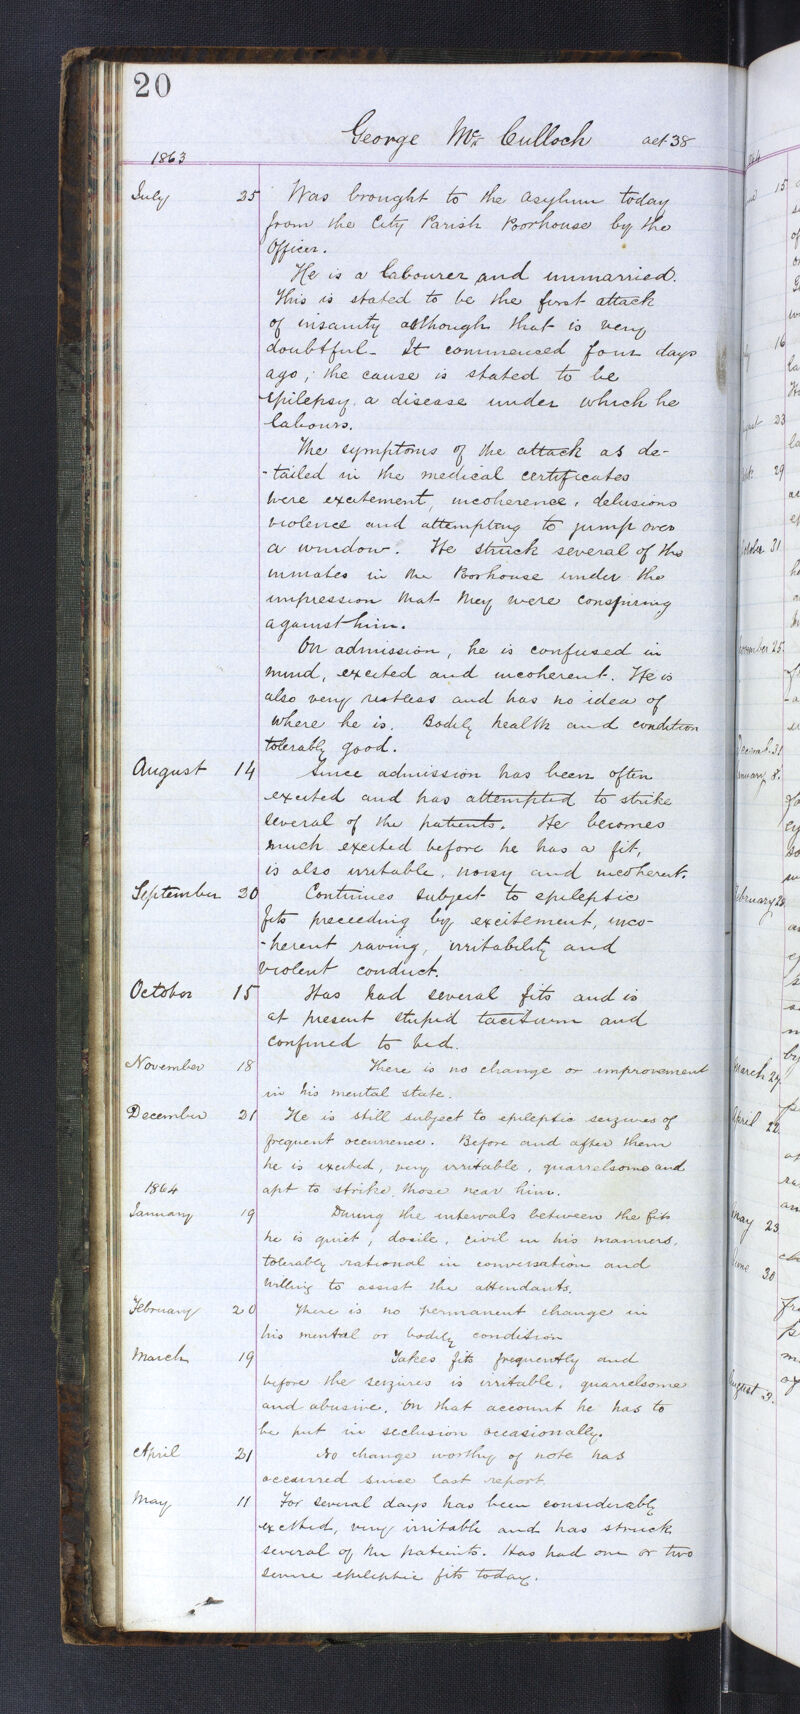 20
George Mc Culloch aet 38
1863
July 25 Was brought to the asylum today
from the City Parish Poorhouse by the
Officer.
He is a labourer and unmarried.
This is stated to be the first attack
of insanity although that is very
doubtful - It commenced four days
ago; the cause is stated to be
epilepsy a disease under which he
labours.
The symptoms of the attack as de-
-tailed in the medical certificates
were excitement, incoherence, delusions
violence and attempting to jump over
a window. He struck several of the
inmates in the Poorhouse under the
impression that they were conspiring
against him.
On admission, he is confused in
mind, excited and incoherent. He is
also very restless and has no idea of
where he is. Bodily health and condition
tolerably good.
August 14 Since admission has been often
excited and has attempted to strike
several of the patients. He becomes
much excited before he has a fit,
is also irritable, noisy and incoherent.
September 20 Continues subject to epileptic
fits preceeding by excitement, inco-
-herent raving, irritability and
violent conduct.
October 15 Has had several fits and is
at present stupid taciturn and
confined to bed.
November 18 There is no change or improvement
in his mental state.
December 21 He is still subject to epileptic seizures of
frequent occurrence. Before and after them
he is excited, very irritable, quarrelsome and
apt to strike those near him.
1864
January 19 During the intervals between the fits
he is quiet, docile, civil in his manners,
tolerably rational in conversation and
willing to assist the attendants.
February 20 There is no permanent change in
his mental or bodily condition
March 19 Takes fits frequently and
before the seizures is irritable, quarrelsome
and abusive. On that account he has to
be put in seclusion occasionally.
April 21 No change worthy of note has
occurred since last report
May 11 For several days has been considerably
excited, very irritable and has struck
several of the patients. Has had one or two
severe epileptic fits today.
15
16
23
29
October 31
November 25
31
8.
February 28
March 29
April 22
May 23
June 30
August 2.